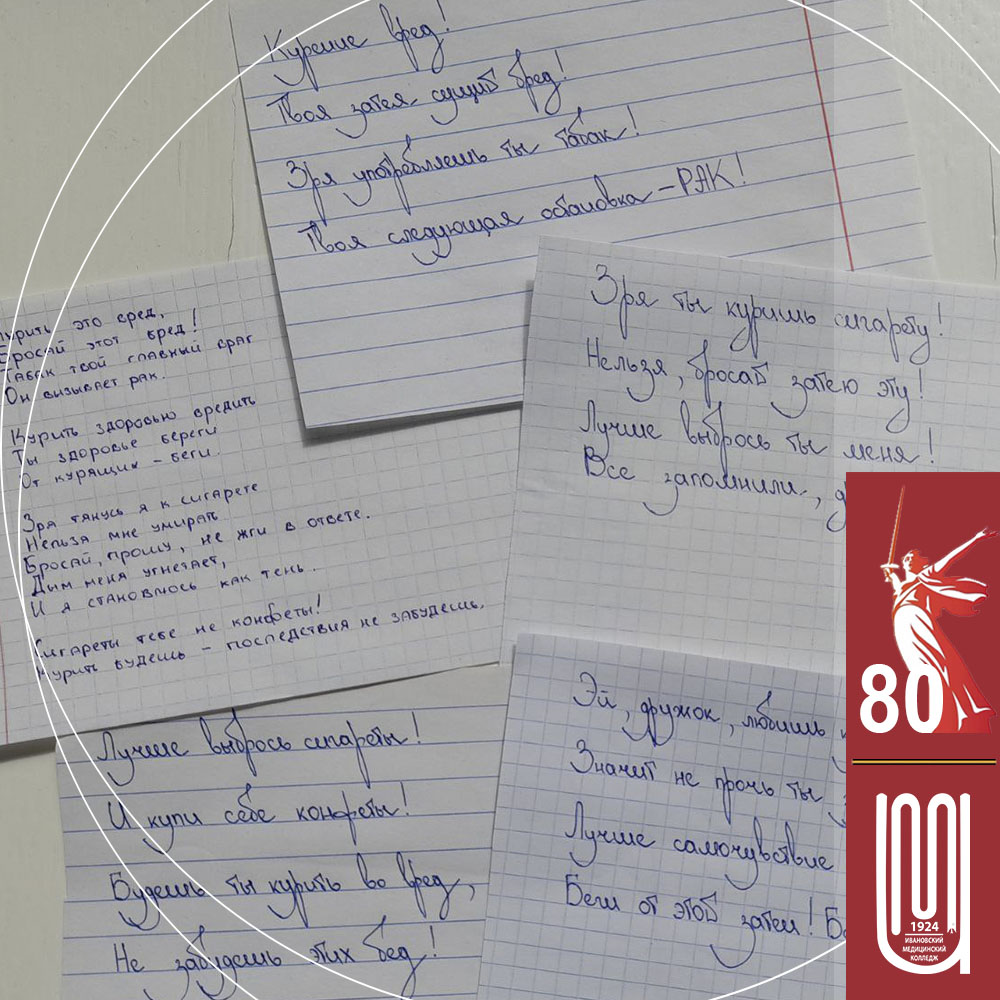 Курение вред!
Твоя затея, сущий бред!
Зря употребляешь ты табак!
Твоя следующая остановка – РАК!
Курить это вред,
Бросай этот бред!
Табак твой главный враг
Он визывает рак.
Курить здоровью вредить
Ты здоровье береги
От курящих – беги.
Зря тянусь я к сигарете
Нельзя мне умирать
Бросай, прошу, не жги в ответе.
Дым меня угнетает,
И я становлюсь как тень.
Сигареты тебе не конфеты!
Курить будешь – последствия не забудешь.
Зря ты куришь сигарету!
Нельзя, бросай затею эту!
Лучше выбрось ты меня!
Все запомнили,
Лучше выбрось сигареты!
И купи себе конфеты!
Будешь ты курить во вред,
Не забудешь этих бед!
Эй, дружок, любишь
Значит не прочь ты
Лучше самочувствие
Беги от этой затеи!
80
1924
ИВАНОВСКИЙ
МЕДИЦИНСКИЙ
КОЛЛЕДЖ